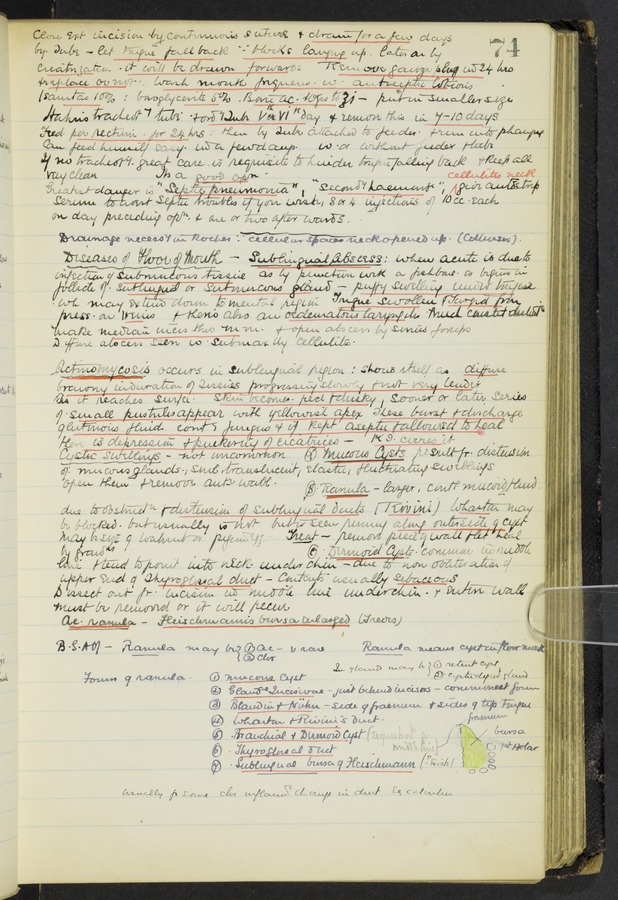 74
Close Ext incision by continuous suture & drain for a few days
by Tube – let tongue fall back ∵ blocks larynx up. Later on by
cicatrization it will be drawn forward. Remove gauze plug in 24 hrs
& replace or not. Wash mouth frequen. w. antiseptic lotions
(Sanitas 10% : boroglyceride 5%. Borac ac. to ʒi – put in smaller size
Hahns tracheoty tube on Vth or VIth day & remove this in 7-10 days
Feed per rectum for 24 hrs : then by Tube attached to feeder & run into pharynx
Can feed himself easy in a few days w. or without feeder & tube
If no tracheoty. great care is requisite to hinder tongue falling back & keep all
very clean In a good opn cellulitis neck
Greatest danger is "Septic pneumonia", "Secondy haement", give antistrep
Serum to avert Septic troubles if you wish, 3 or 4 injections of 10 cc each
on day preceding opn & one or two afterwards.
Drainage necessy in Kocher ∵ cellular spaces neck opened up. (Collinson).
Diseases of Floor of Mouth – Sublingual Abscess: when acute is due to
infection of submucous tissue as by puncture with a fishbone or begins in
follicle of Sublingual or Submucous gland – puffy swelling under tongue
wh may extend down to mental region Tongue swollen & forced from
press. on veins & there is also an oedematous laryngitis
make median incis thro' m.m. & open abscess by sinus forceps
Diffuse abscess seen in Submaxilly cellulitis.
Actinomycosis occurs in sublingual region : shows itself as diffuse
brawny induration of tissues progressing slowly & not very tender
As it reaches surface Skin becomes red & dusky, sooner or later series
of small pustules appear with yellowish apex These burst & discharge
glutinous fluid cont'g fungus & if kept aseptic & allowed to heal
there is depression & puckering of cicatrices – K I. cures it
Cystic Swellings – not uncommon (α) Mucous Cysts result fr. distension
of mucous glands, small translucent, elastic, fluctuating swellings
open them & remove ant. wall.
(β) Ranula – larger, contg mucoid fluid
due to obstructn & distension of Sublingual ducts (Rivini) Wharton may
be blocked but usually is not but is seen running along outerside of cyst
May be size of walnut or pigeon's egg Treat – remove piece of wall & let heal
by granns (c) Dermoid Cysts common in middle
line & tend to point into neck under chin – due to non obliteration of
upper end of Thyroglossal duct – Contents usually sebaceous
Dissect out fr. incision in middle line under chin. Entire wall
must be removed or it will recur
Ac. ranula – Fleischmann's bursa enlarged (Treves)
B.S.A of – Ranula may be ① Ac – v rare
② Chr
Ranula means cyst in floor mouth
S. gland may be ① retent cyst
② cystic degend gland
Forms of ranula. ① mucous Cyst
② Glande Incisivae – just behind incisors – commonest form
③ Blandin & Nuhn – side of fraenum & sides of tip Tongue
④ Wharton & Rivini's duct.
⑤ Branchial & Dermoid Cyst
⑥ Thyroglossal duct
⑦ Sublingual bursa of Fleischmann
fraenum
bursa
1st Molar
usually fr some chr inflamy change in duct Ex calculus